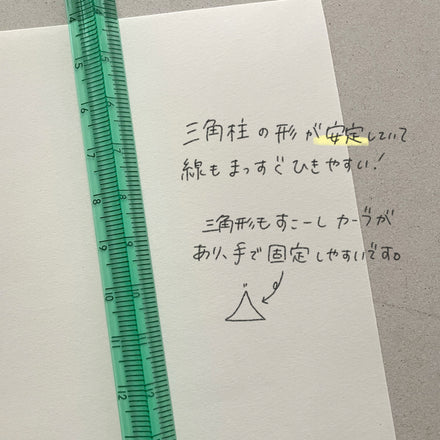 三角柱の形が安定していて
線もまっすぐひきやすい!
三角形もすこーしカーブが
あり、手で固定しやすいです。
4
5
6
7
8
9
10
11
12
5
6
7
8
9
10
11
12